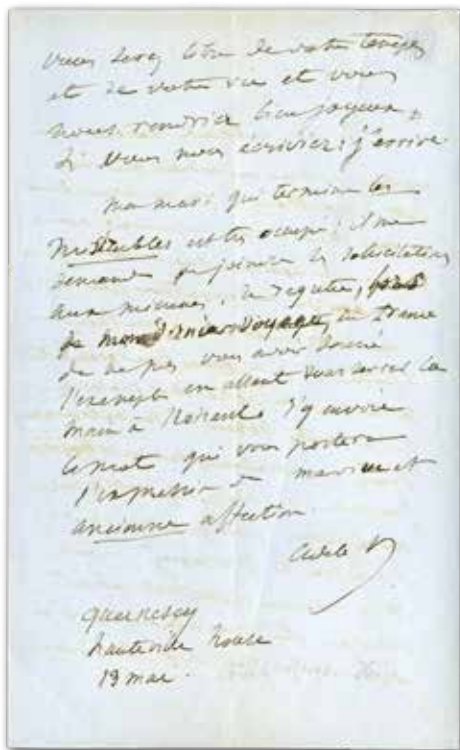 vous serez libre de votre temps
et de votre vie et vous
nous rendriez bien joyeux,
si vous nous écriviez : j'arrive
mon mari qui termine les
Misérables est très occupé ; il me
demande de joindre les sollicitations
aux miennes. Je regrette,
de mon dernier voyage en France
de ne pas vous avoir donné
l'exemple en allant vous serrer la
main à Nohant. J'y envoie
ce mot qui vous portera
l'expression de ma vive et
ancienne affection.
Adèle
Guernesey
hauteville house
19 mai.